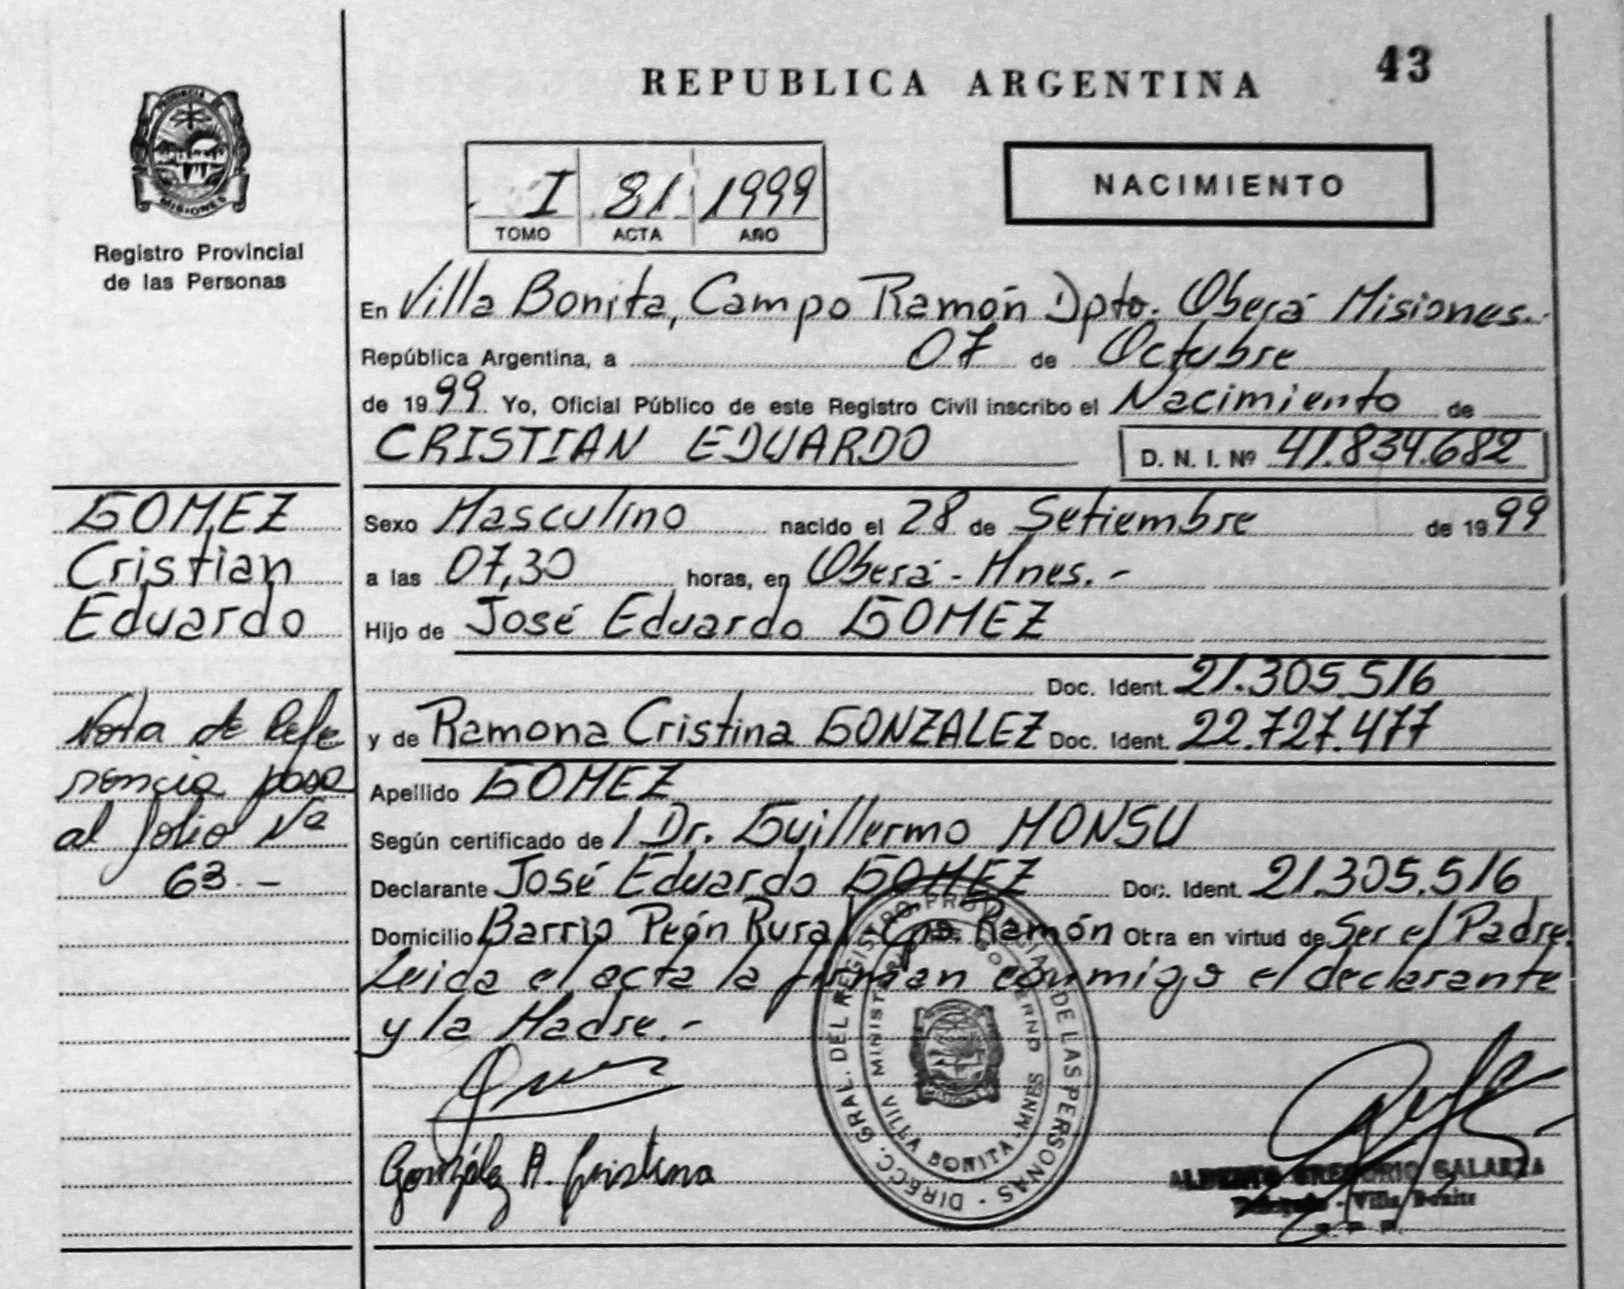 43
REPUBLICA ARGENTINA
PROVINCIA DE
MISIONES
Registro Provincial
de las Personas
I 81 1999
TOMO ACTA AÑO
NACIMIENTO
En Villa Bonita, Campo Ramón Dpto. Oberá Misiones.
República Argentina, a 07 de Octubre
de 1999 Yo, Oficial Público de este Registro Civil inscribo el Nacimiento de
CRISTIAN EDUARDO D. N. I. Nº 41.834.682
GOMEZ
Cristian
Eduardo
Sexo Masculino nacido el 28 de Setiembre de 1999
a las 07,30 horas, en Oberá - Mnes. -
Hijo de José Eduardo GOMEZ
Doc. Ident. 21.305.516
y de Ramona Cristina GONZALEZ Doc. Ident. 22.727.477
Apellido GOMEZ
Según certificado de / Dr. Guillermo MONSU
Declarante José Eduardo GOMEZ Doc. Ident. 21.305.516
Domicilio Barrio Peón Rural - Cpo. Ramón Otra en virtud de Ser el Padre.
Leida el acta la firman conmigo el declarante
y la Madre. -
Nota de Refe
rencia pasa
al folio Nº
63. -
DIRECC. GRAL. DEL REGISTRO PROVINCIAL DE LAS PERSONAS
MINISTERIO DE GOBIERNO
VILLA BONITA - MNES
González R. Cristina
ALBERTO GREGORIO GALARZA
Delegado - Villa Bonita